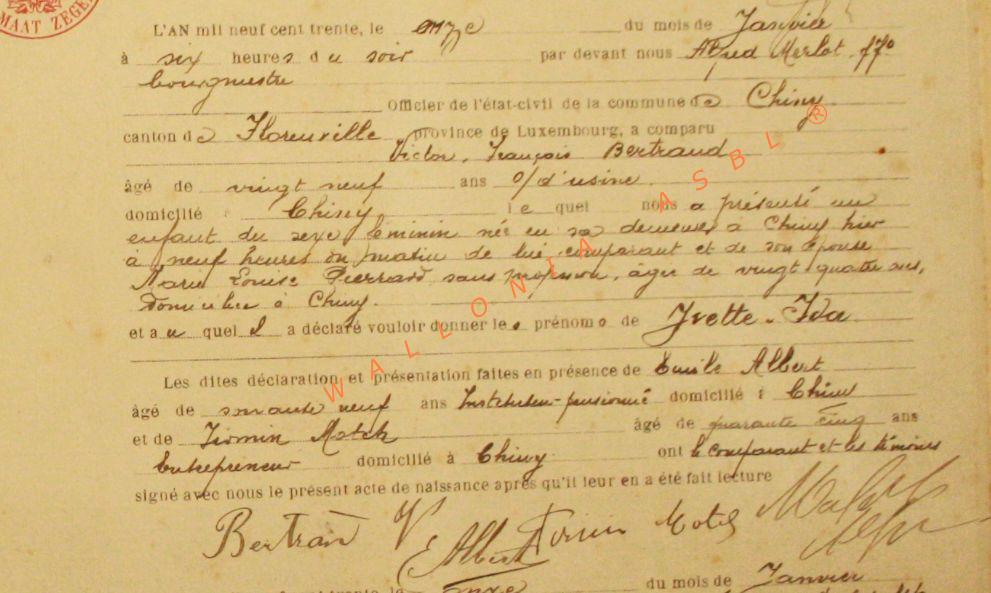 MAAT ZEGEL
L'AN mil neuf cent trente, le onze du mois de Janvier
à six heures du soir par devant nous Alfred Merlot ff
bourgmestre
Officier de l'état-civil de la commune de Chiny
canton de Florenville, province de Luxembourg, a comparu
Victor, François Bertrand
âgé de vingt neuf ans o/d'usine
domicilié à Chiny le quel nous a présenté un
enfant du sexe féminin née en sa demeure à Chiny hier
à neuf heures du matin de lui comparant et de son épouse
Marie Louise Pierrard sans profession, âgée de vingt quatre ans,
domiciliée à Chiny.
et au quel il a déclaré vouloir donner les prénoms de Yvette-Ida
Les dites déclaration et présentation faites en présence de Emile Albert
âgé de soixante neuf ans Instituteur-pensionné domicilié à Chiny
et de Firmin âgé de quarante cinq ans
Entrepreneur domicilié à Chiny ont le comparant et les témoins
signé avec nous le présent acte de naissance après qu'il leur en a été fait lecture
Bertrand V
E Albert Firmin
WALLONIA ASBL ®
onze du mois de Janvier